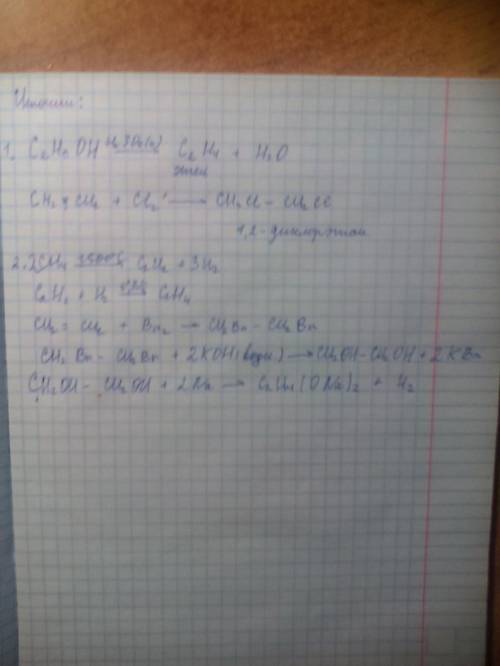 1. C₂H₅OH H₂SO₄(к) → C₂H₄ + H₂O
этен
CH₂=CH₂ + Cl₂ → CH₂Cl - CH₂Cl
1,2-дихлорэтан
2. 2CH₄ 1500°C → C₂H₂ + 3H₂
C₂H₂ + H₂ → C₂H₄
CH₂ = CH₂ + Br₂ → CH₂Br - CH₂Br
CH₂Br - CH₂Br + 2KOH(водн) → CH₂OH-CH₂OH + 2KBr
CH₂OH - CH₂OH + 2Na → C₂H₄(ONa)₂ + H₂